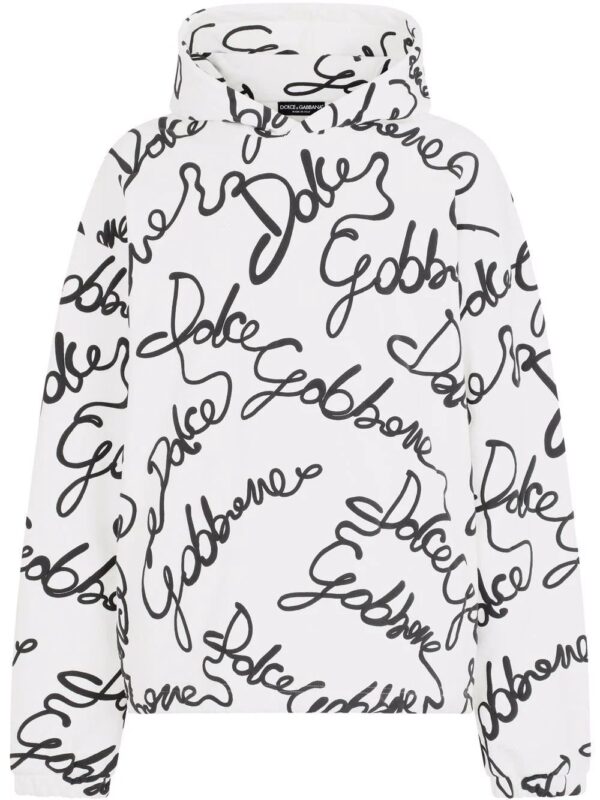 DOLCE & GABBANA
Dolce
Gabbana
Dolce
Dolce
Gabbana
Dolce
Gabbana
Dolce
Gabbana
Dolce
Gabbana
Dolce
Gabbana
Dolce
Gabbana